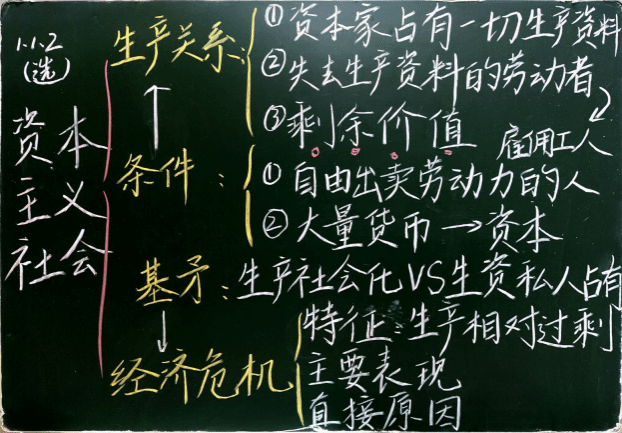 1.1.2
(选)
资本
主义
社会
生产关系:
①资本家占有一切生产资料
②失去生产资料的劳动者
雇用工人
③剩余价值
↑
条件:
①自由出卖劳动力的人
②大量货币→资本
基矛:生产社会化VS生资私人占有
↓
经济危机
特征:生产相对过剩
主要表现
直接原因